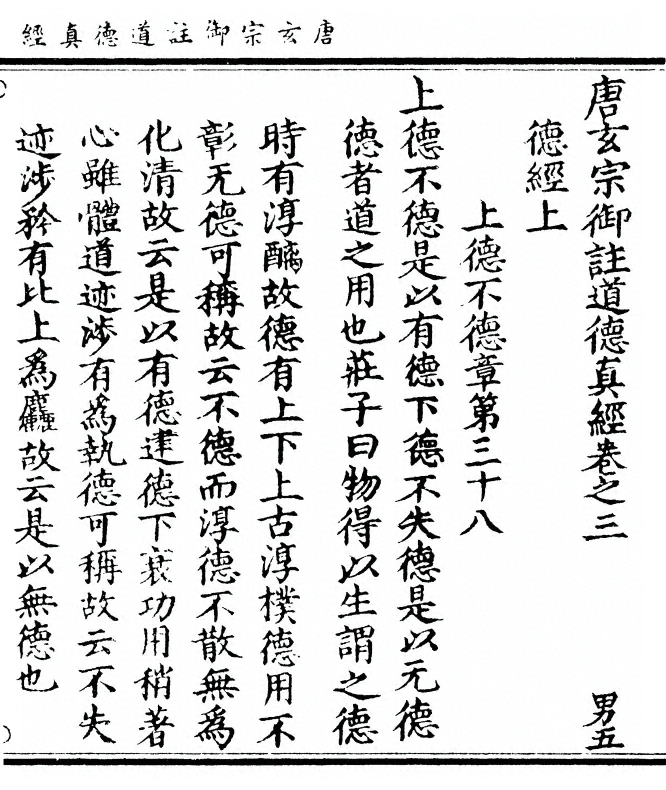 唐玄宗御註道德真經
唐玄宗御註道德真經卷之三 男五
德經上
上德不德章第三十八
上德不德是以有德下德不失德是以无德
德者道之用也莊子曰物得以生謂之德
時有淳醨故德有上下上古淳樸德用不
彰无德可稱故云不德而淳德不散無爲
化清故云是以有德逮德下衰功用稍著
心雖體道迹涉有爲執德可稱故云不失
迹涉矜有比上爲麤故云是以無德也